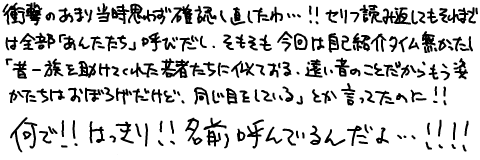 衝撃のあまり当時思わず確認し直したわ…!! セリフ読み返してもそれまで
は全部「あんたたち」呼びだし、そもそも今回は自己紹介タイム無かたし
「昔一族を助けてくれた若者たちに似ておる、遠い昔のことだからもう姿
かたちはおぼろげだけど、同じ目をしている」とか言ってたのに!!
何で!! はっきり!! 名前呼んでいるんだよ…!!!!